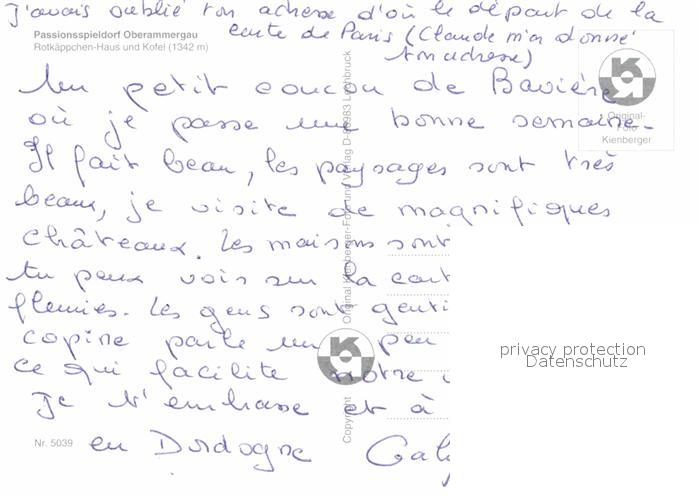 J'avais oublié ton adresse d'où le départ de la
carte de Paris (Claude m'a donné
ton adresse)
Passionsspieldorf Oberammergau
Rotkäppchen-Haus und Kofel (1342 m)
Un petit coucou de Bavière
où je passe une bonne semaine.
Il fait beau, les paysages sont très
beaux, je visite de magnifiques
châteaux. Les maisons sont
tu peux voir sur la cart
fleuries. Les gens sont genti
copine parle un peu
ce qui facilite notre
Je t'embrasse et à
en Dordogne
Original-
Foto
Kienberger
Copyright Original Kienberger-Foto und Verlag
privacy protection
Datenschutz
Nr. 5039